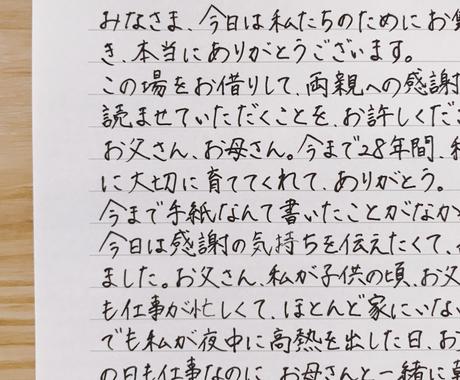 みなさま、今日は私たちのためにお
き、本当にありがとうございます。
この場をお借りして、両親への感謝
読ませていただくことを、お許しくだ
お父さん、お母さん。今まで28年間、
に大切に育ててくれて、ありがとう。
今まで手紙なんて書いたことがなか
今日は感謝の気持ちを伝えたくて、
ました。お父さん、私が子供の頃、お父
も仕事が忙しくて、ほとんど家にいな
でも私が夜中に高熱を出した日、お
の日も仕事なのに、お母さんと一緒に